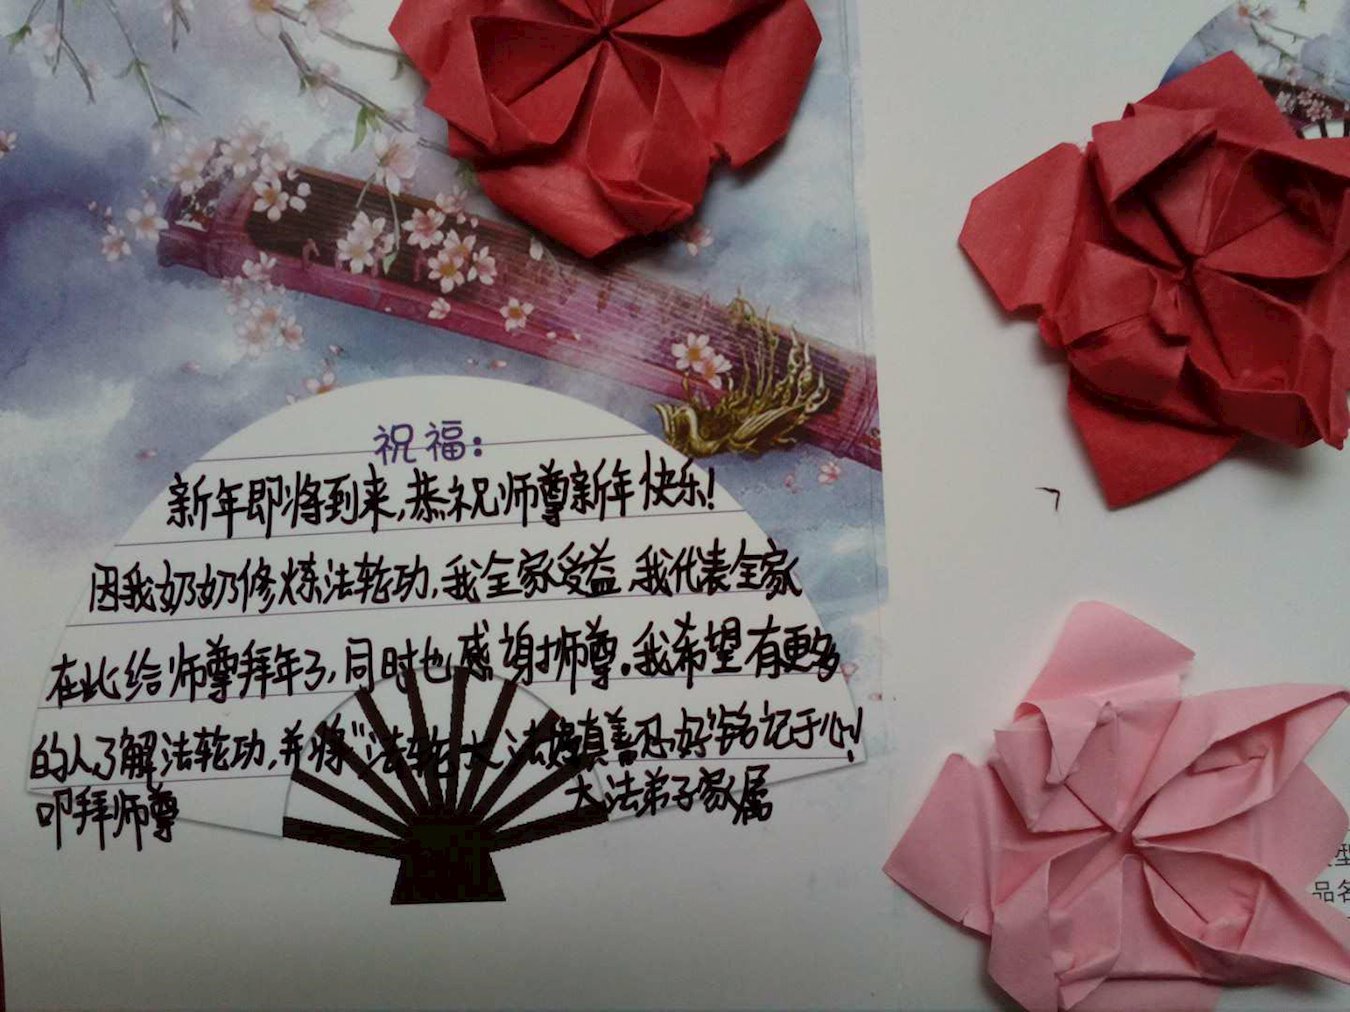 祝福:
新年即将到来,恭祝师尊新年快乐!
因我奶奶修炼法轮功,我全家受益,我代表全家
在此给师尊拜年了,同时也感谢师尊。我希望有更多
的人了解法轮功,并将“法轮大法好真善忍好”铭记于心!
叩拜师尊
大法弟子家属
型
品名